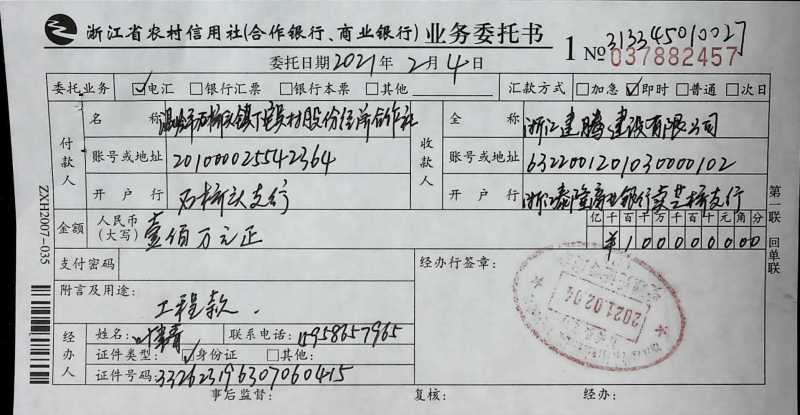 浙江省农村信用社(合作银行、商业银行)业务委托书
313345010027
1 No 037882457
委托日期2021年2月4日
委托业务 ☑电汇 □银行汇票 □银行本票 □其他 汇款方式 □加急 ☑即时 □普通 □次日
付款人
名称 温岭市石桥头镇下 村股份经济合作社
账号或地址 201000025542364
开户行 石桥头支行
收款人
全称 浙江建腾建设有限公司
账号或地址 6322001201030000102
开户行 浙江泰隆商业银行 芝桥支行
金额 人民币(大写) 壹佰万元正
亿千百十万千百十元角分
¥100000000
支付密码
经办行签章:
附言及用途:
工程款.
2021.02.04
经办人
姓名: 叶 青 联系电话: 15958657965
证件类型: ☑身份证 □其他:
证件号码: 332623196307060415
事后监督: 复核: 经办:
第一联 回单联
ZXH2007-035